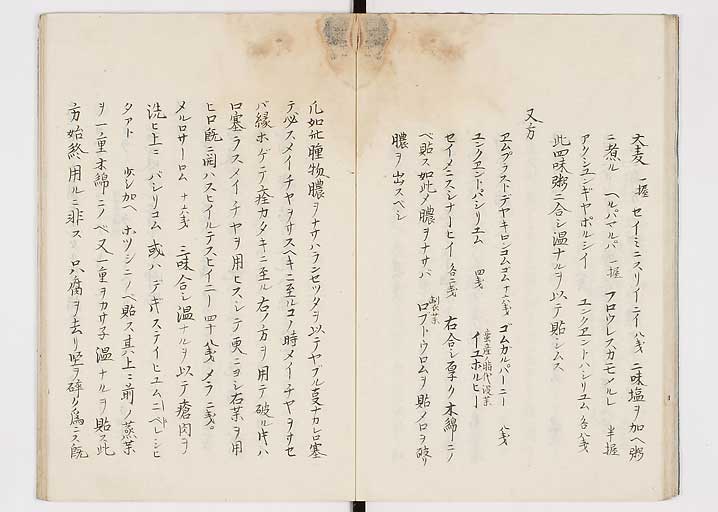 大麦 一握 セイミニスリイニイ 八戔 二味塩ヲ加ヘ粥
ニ煮ル ヘルバマルバ 一握 フロウレスカモメルレ 半握
アクシユンギヤポルシイ ユンクエントバシリユム 各八戔
此四味粥ニ合シ温ナルヲ以テ貼シムス
又方
ヱムプラストデヤキロンゴム 十六戔 ゴムガルバーニー 八戔
ユンクエントバシリユム 四戔 イユホルヒー
セイメニスシナーヒイ 各二戔 右合シ厚ク木綿ニノ
ベ貼ス如此〆膿ヲナサバ 製薬 ロフトウロムヲ貼ノ口ヲ破リ
膿ヲ出スベシ
凡如此腫物膿ヲナサハランセツタヲ以テヤブル
テ必スメイチヤヲサスヘキニ至ルコノ時メイチヤヲサセ
バ縁ホゲテ痊カタキニ至ル右ノ方ヲ用テ破ル時ハ
口塞ラスメイチヤヲ用ヒスシテ更ニヨシ右薬ヲ用
ヒ口既ニ開ハスヒイルテスヒイニー 四十八戔 メラ 二戔。
メルロサーロム 十六戔 三味合シ温ナルヲ以テ瘡肉ヲ
洗ヒ上ニ バシリコム 或ハ デギステイヒユムニ ベレシヒ
タアト 少シ加ヘ ホツシニノベ貼ス其上ニ前ノ蒸薬
ヲ一重木綿ニノベ又一重ヲカサ子温ナルヲ貼ス此
方始終用ルニ非ス 只腐ヲ去リ堅ヲ碎ク為ニス既